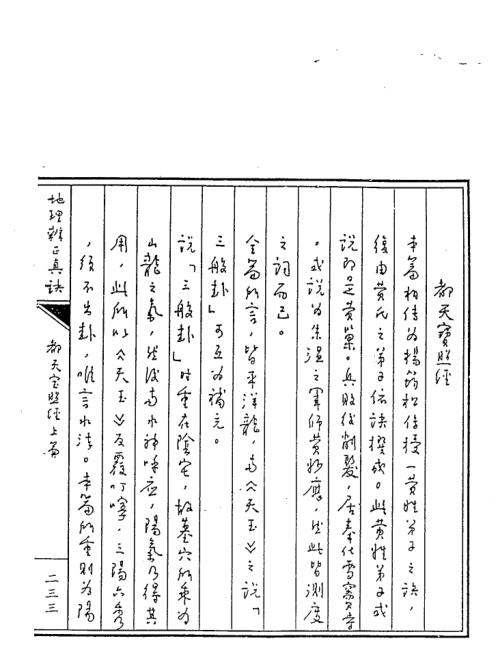 都天寶照經
本篇相傳為楊筠松傳授一黄姓弟子之訣，
復由黄氏之弟子依訣撰成。此黄姓弟子或
說即是黄巢。兵敗後削髮，居奉化雪竇寺
，或說為朱溫之軍師黄妙應，然此皆測度
之詞而已。
全篇所言，皆平洋龍，與《天玉》之說「
三般卦」可互為補充。
說「三般卦」時重在陰宅，故墓穴所乘為
山龍之氣，然後與水神呼应，陽氣乃得其
用，此所以《天玉》反覆叮嚀，三陽六秀
，須不出卦，唯言水法。本篇所重則為陽
地理辨正真訣
都天宝照經上篇
二三三